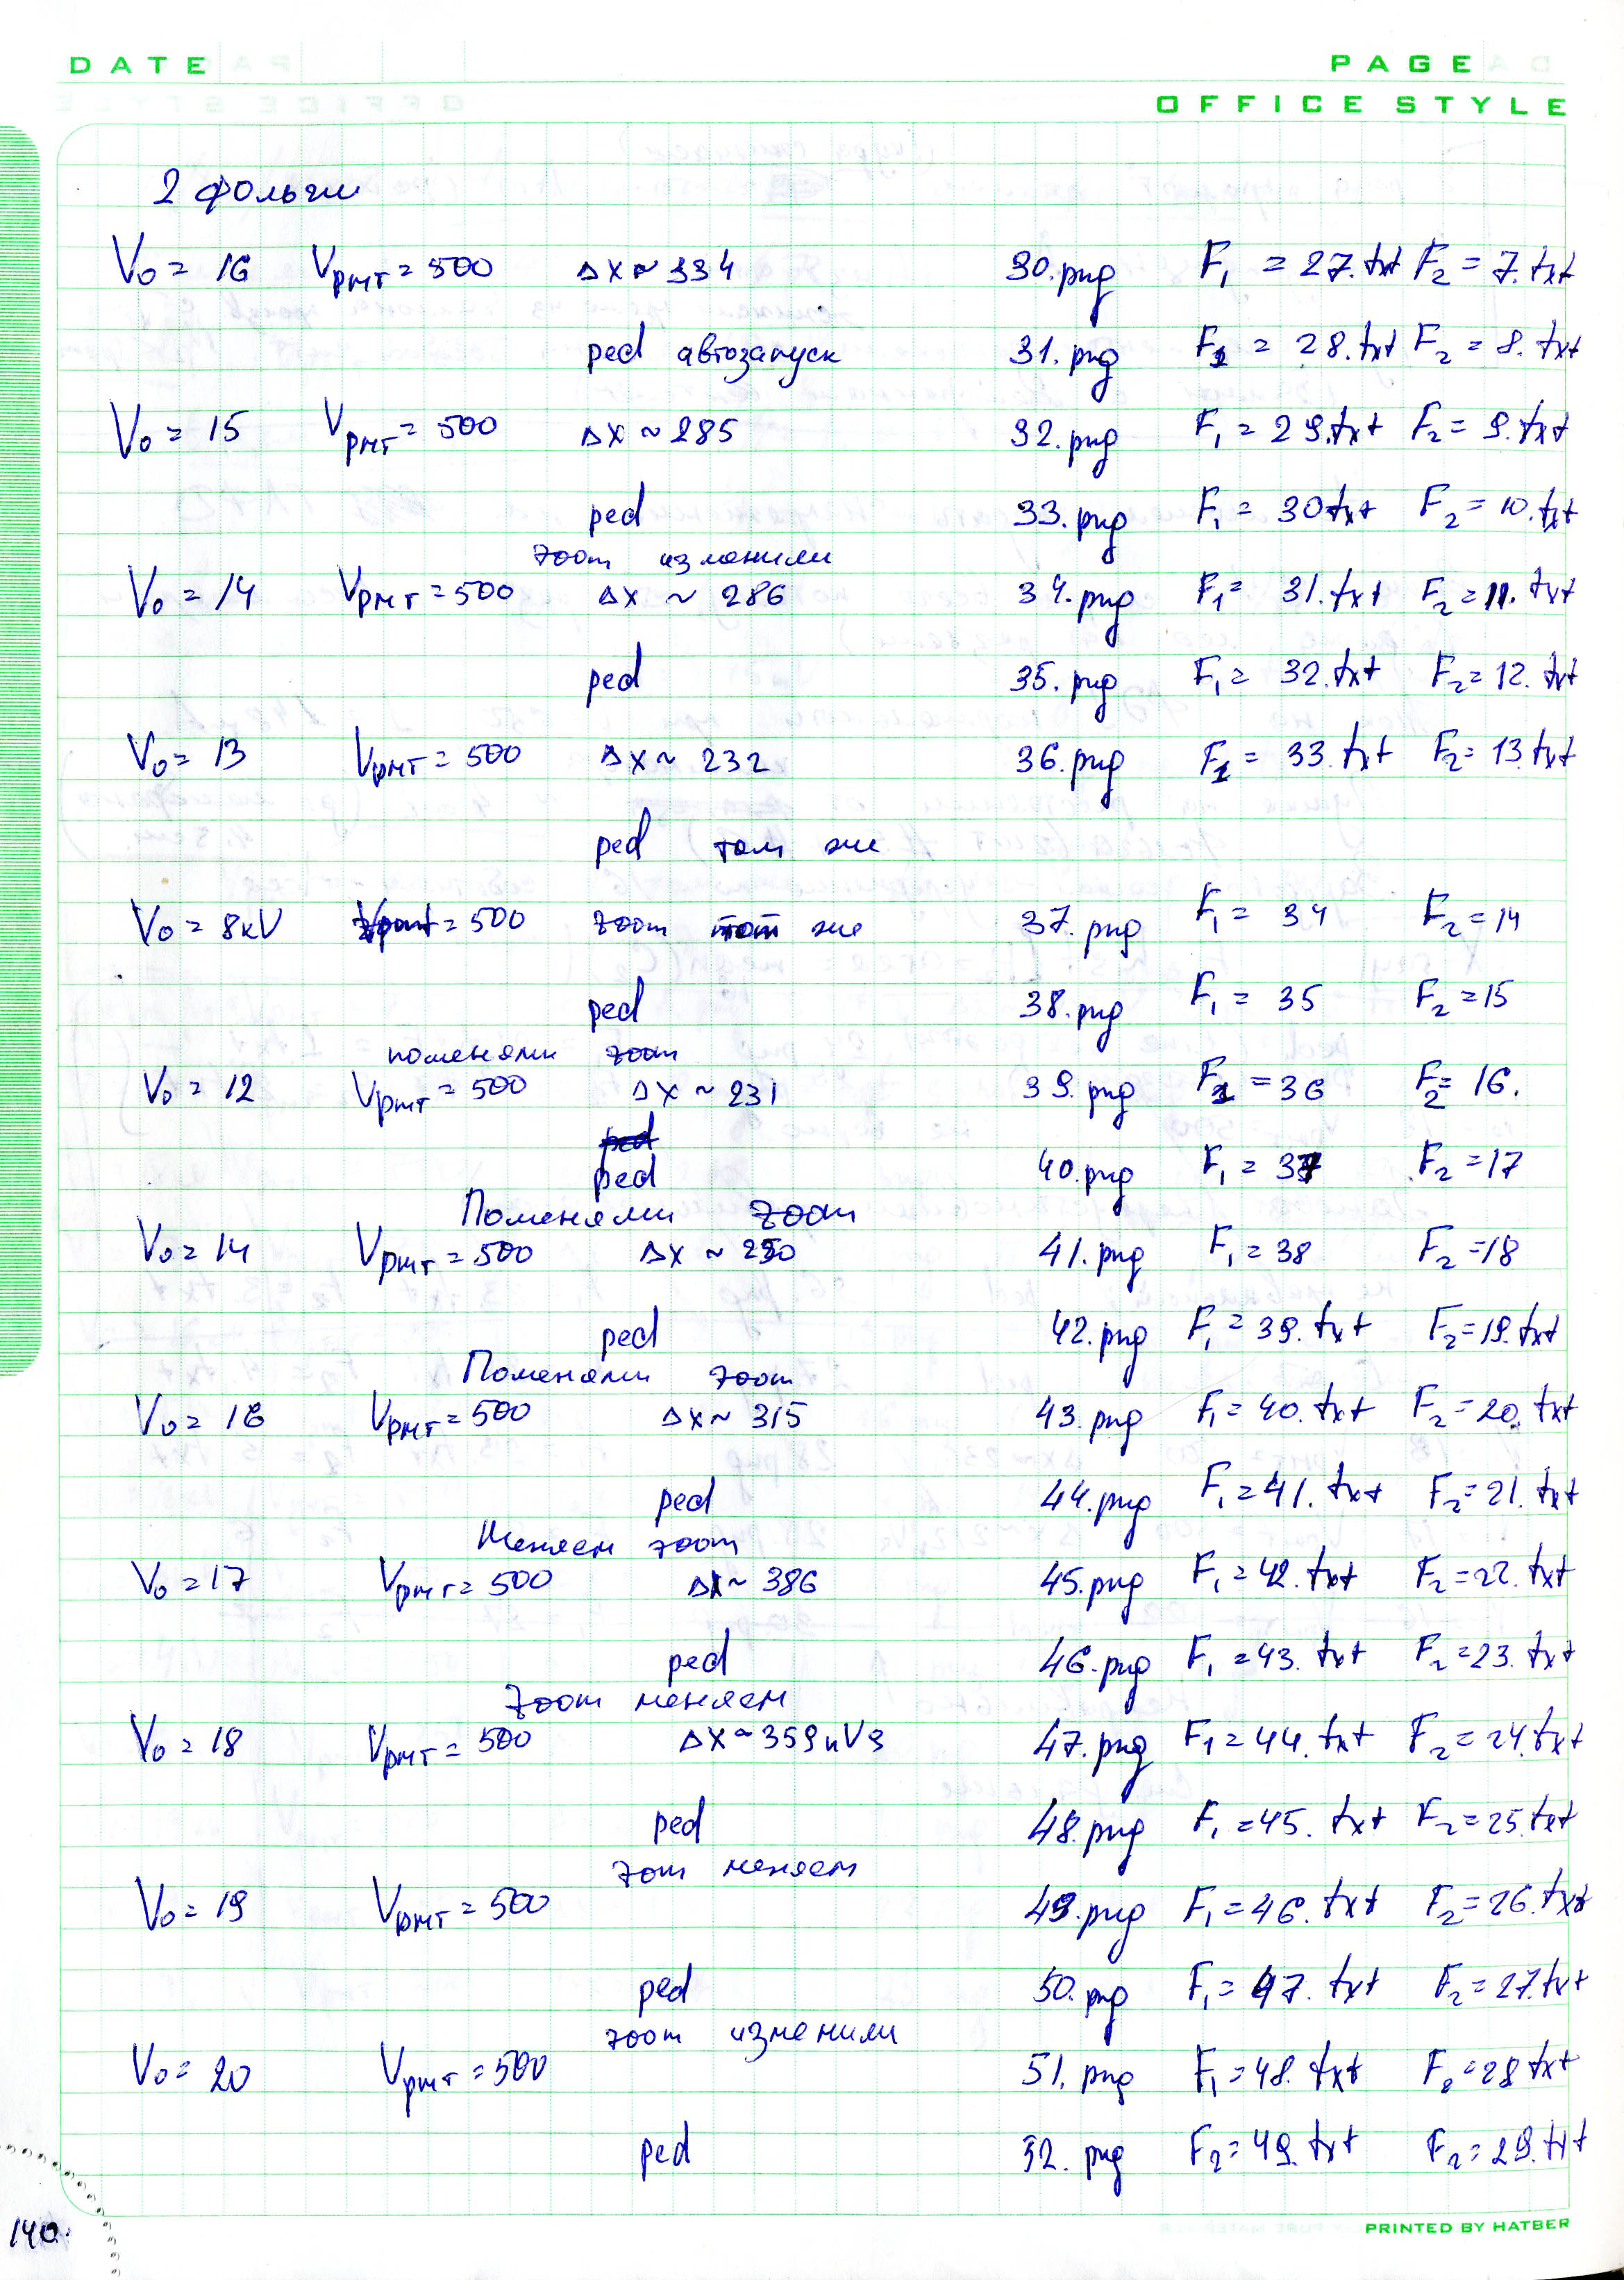 DATE PAGE
OFFICE STYLE
2 фольги
V₀ = 16 Vрмт = 500 ΔX ~ 334 30.png F₁ = 27.txt F₂ = 7.txt
ped автозапуск 31.png F₁ = 28.txt F₂ = 8.txt
V₀ = 15 Vрмт = 500 ΔX ~ 285 32.png F₁ = 29.txt F₂ = 9.txt
ped 33.png F₁ = 30txt F₂ = 10.txt
zoom изменили
V₀ = 14 Vрмт = 500 ΔX ~ 286 34.png F₁ = 31.txt F₂ = 11.txt
ped 35.png F₁ = 32.txt F₂ = 12.txt
V₀ = 13 Vрмт = 500 ΔX ~ 232 36.png F₁ = 33.txt F₂ = 13.txt
ped там же
V₀ = 8kV = 500 zoom тот же 37.png F₁ = 34 F₂ = 14
ped 38.png F₁ = 35 F₂ = 15
поменяли zoom
V₀ = 12 Vрмт = 500 ΔX ~ 231 39.png F₁ = 36 F₂ = 16.
ped 40.png F₁ = 37 F₂ = 17
Поменяли zoom
V₀ = 14 Vрмт = 500 ΔX ~ 250 41.png F₁ = 38 F₂ = 18
ped 42.png F₁ = 39.txt F₂ = 19.txt
Поменяли zoom
V₀ = 16 Vрмт = 500 ΔX ~ 315 43.png F₁ = 40.txt F₂ = 20.txt
ped 44.png F₁ = 41.txt F₂ = 21.txt
Меняем zoom
V₀ = 17 Vрмт = 500 ΔX ~ 386 45.png F₁ = 42.txt F₂ = 22.txt
ped 46.png F₁ = 43.txt F₂ = 23.txt
zoom меняем
V₀ = 18 Vрмт = 500 ΔX ~ 359nVs 47.png F₁ = 44.txt F₂ = 24.txt
ped 48.png F₁ = 45.txt F₂ = 25.txt
zom меняем
V₀ = 19 Vрмт = 500 49.png F₁ = 46.txt F₂ = 26.txt
ped 50.png F₁ = 47.txt F₂ = 27.txt
zoom изменили
V₀ = 20 Vрмт = 500 51.png F₁ = 48.txt F₂ = 28 txt
ped 52.png F₂ = 49.txt F₂ = 29.txt
140.
PRINTED BY HATBER